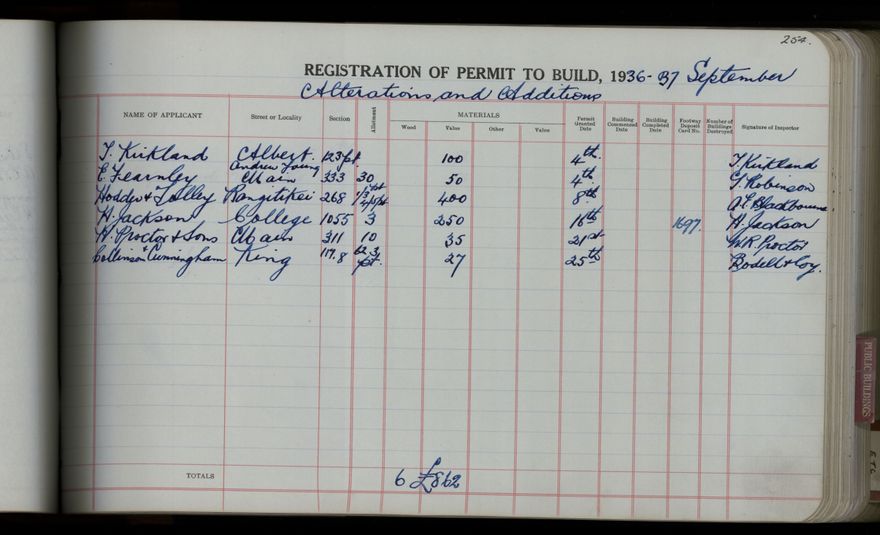 254.
REGISTRATION OF PERMIT TO BUILD, 1936-37 September
Alterations and Additions
NAME OF APPLICANT Street or Locality Section Allotment MATERIALS Permit Granted Date Building Commenced Date Building Completed Date Footway Deposit Card No. Number of Buildings Destroyed Signature of Inspector
Wood Value Other Value
T. Kirkland Albert. 123 pt. 100 4th. T. Kirkland
Andrew Young
E. Fearnley Main 333 30 50 4th Robinson
Hodder & Tolley Rangitikei 268 400 8th Blackbourne
H. Jackson College 1055 3 250 16th 1697. H. Jackson
H. Proctor & Sons Main 311 10 35 21st W.R. Proctor
Collinson & Cunningham King 27 25th Bodell & Coy.
TOTALS 6 £862
PUBLIC BUILDINGS